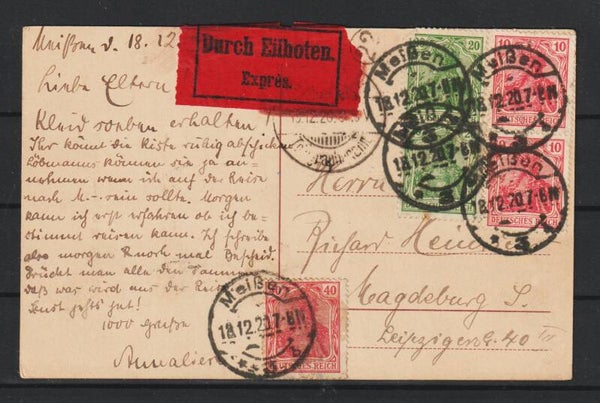 Meißen d. 18.12
Durch Eilboten.
Exprès.
20
10
10
Meißen
18.12.20.7-8N
Meißen
18.12.20.7-8N
18.12.20.7-8N
3
Meißen
18.12.20.7-8N
3
DEUTSCHES REICH
10
DEUTSCHES REICH
Liebe Eltern
Kleid soeben erhalten.
Ihr könnt die Kiste ruhig abschicken
können sie ja an-
nehmen wenn ich auf der Reise
nach M. sein sollte. Morgen
kann ich erst erfahren ob ich be-
stimmt reisen kann. Ich schreibe
also morgen noch mal Bescheid.
Drückt man alle den Daumen
daß was wird aus der
Sonst gehts gut!
1000 Grüße
Annalies
Herrn
Richard
Magdeburg S.
Leipzigerstr. 40 III
Meißen
18.12.20.7-8N
40
DEUTSCHES REICH